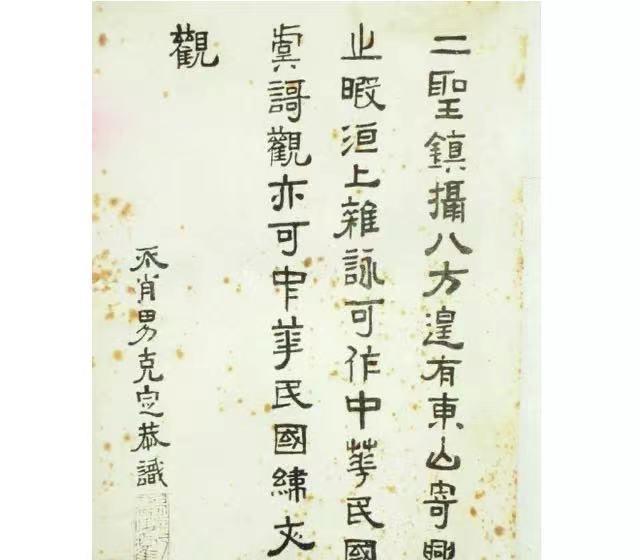 二聖鎮攝八方遑有東山寄興
止暇洹上雜詠可作中華民國
虞謌觀亦可中華民國緯
觀
不肖男克定恭識